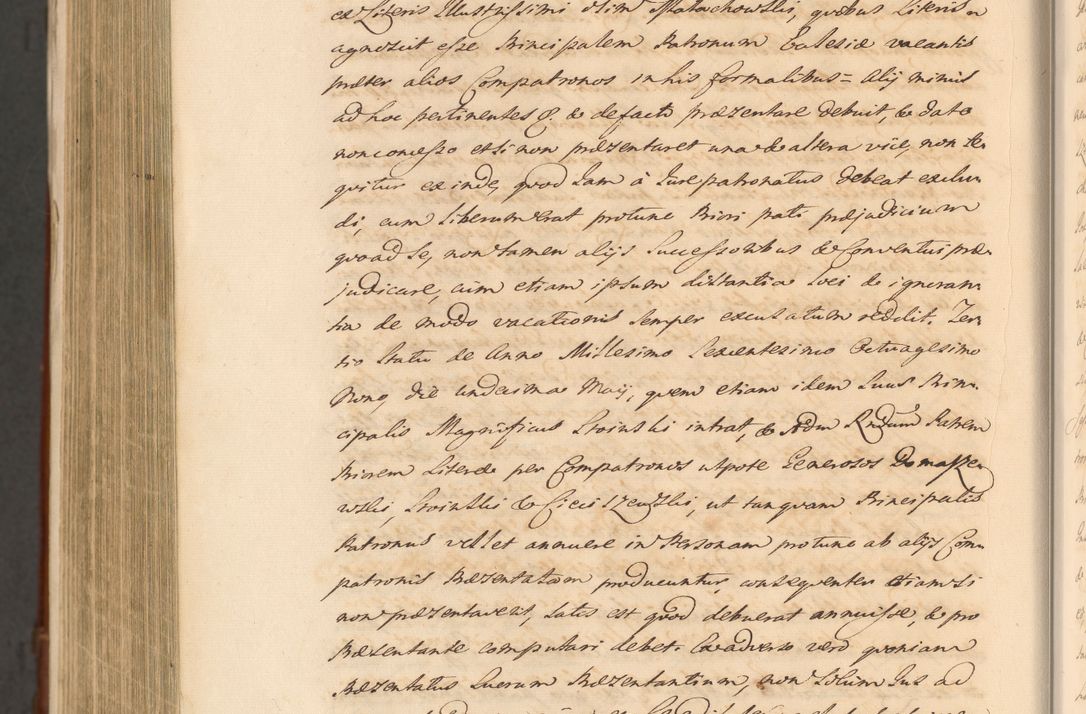 ex Literis Illustrissimi olim Małachowski, quibus Literis
agnoscit esse Principalem Patronum Ecclesiæ vacantis
præter alios Compatronos in his formalibus = Alij minus
ad hoc pertinentes & de facto præzentare debuit, & dato
non concesso etsi non præzentaret una & altera vice, non se-
quitur ex inde, quod Iam à Iure patronatus debeat exclu-
di, cum Liberum erat pro tunc Priori pati præjudicium
quoad Se, non tamen alijs Successoribus & Conventui præ-
judicare, cum etiam ipsum distantia Loci & ignoran-
tia de modo vacationis Semper excusatum reddit. Ter-
tio Statu de Anno Millesimo Sexcentesimo Octuagesimo
Nono, die undecima Maij, quem etiam idem Suus Prin-
cipalis Magnificus Stoinski intrat, & Adm Rndum Patrem
Priorem Literæ per Compatronos utpote Generosos Domasze-
wski, Stoinski & Cieciszewski, ut tanquam Principalis
Patronus vellet annuere in Personam pro tunc ab alijs Com-
patronis Præzentatam producuntur, consequenter etiamsi
non præzentaverit, Satis est quod debuerat annuisse, & pro
Præzentante computari debet. Ex adverso verò quoniam
Præzentatus Suorum Præzentantium, non Solum Ius ad